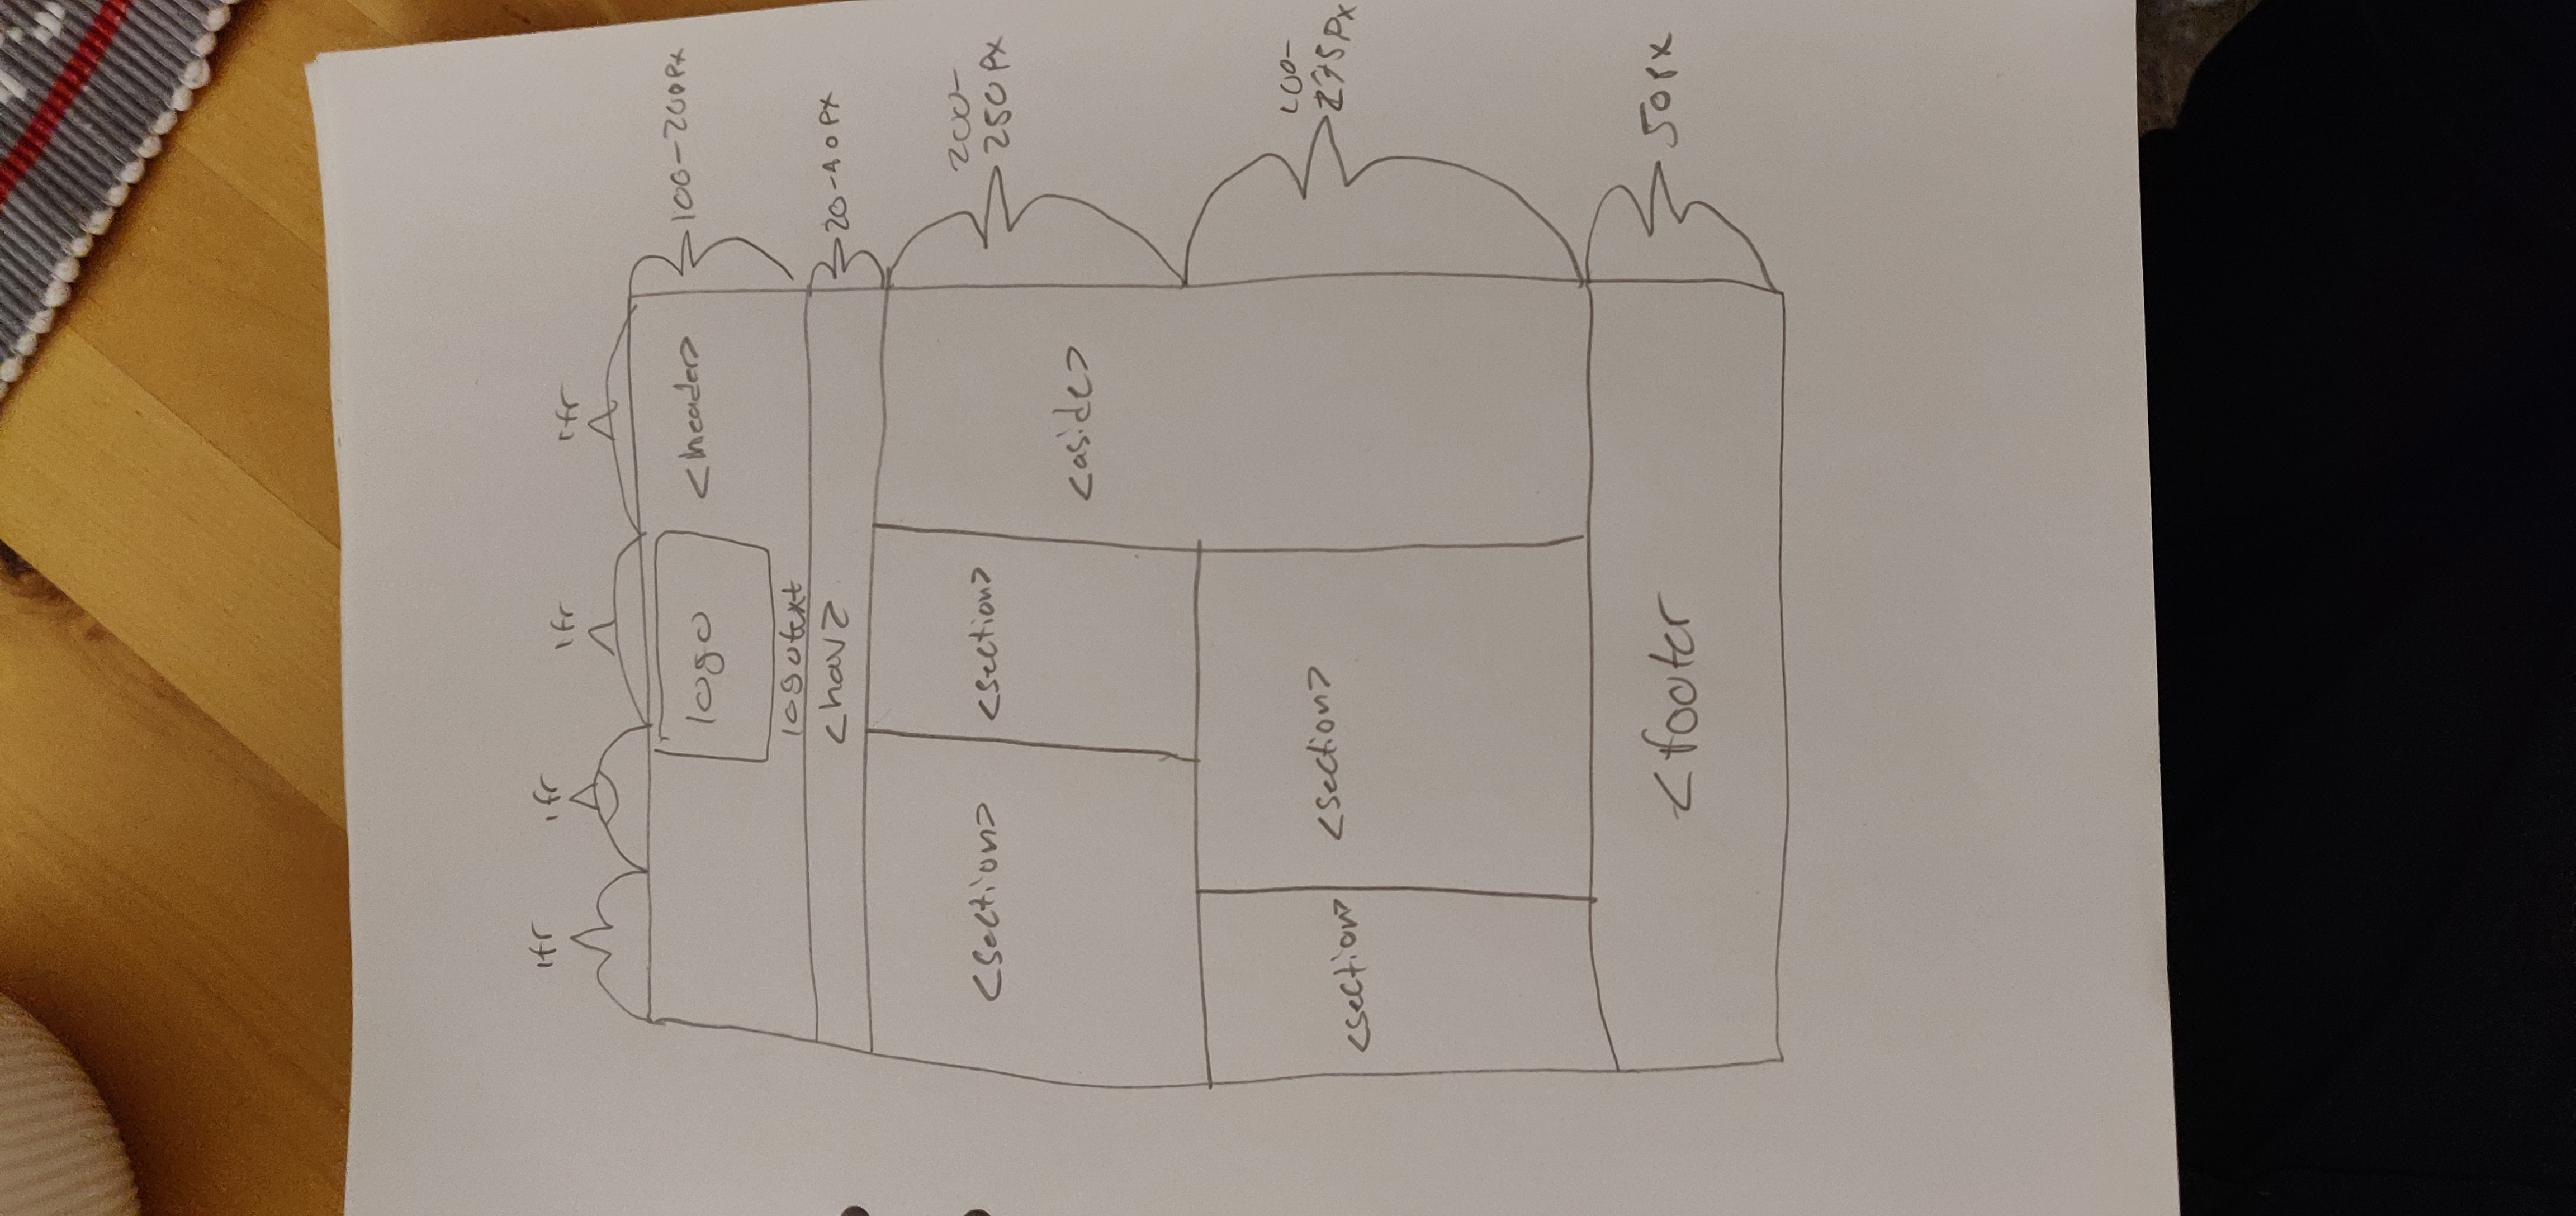 1fr 1fr 1fr 1fr
logo <header> 100-200px
logotext
<nav> 20-40px
<section> <section> 200-
250px
<aside>
<section> <section>
275px
<footer 50px